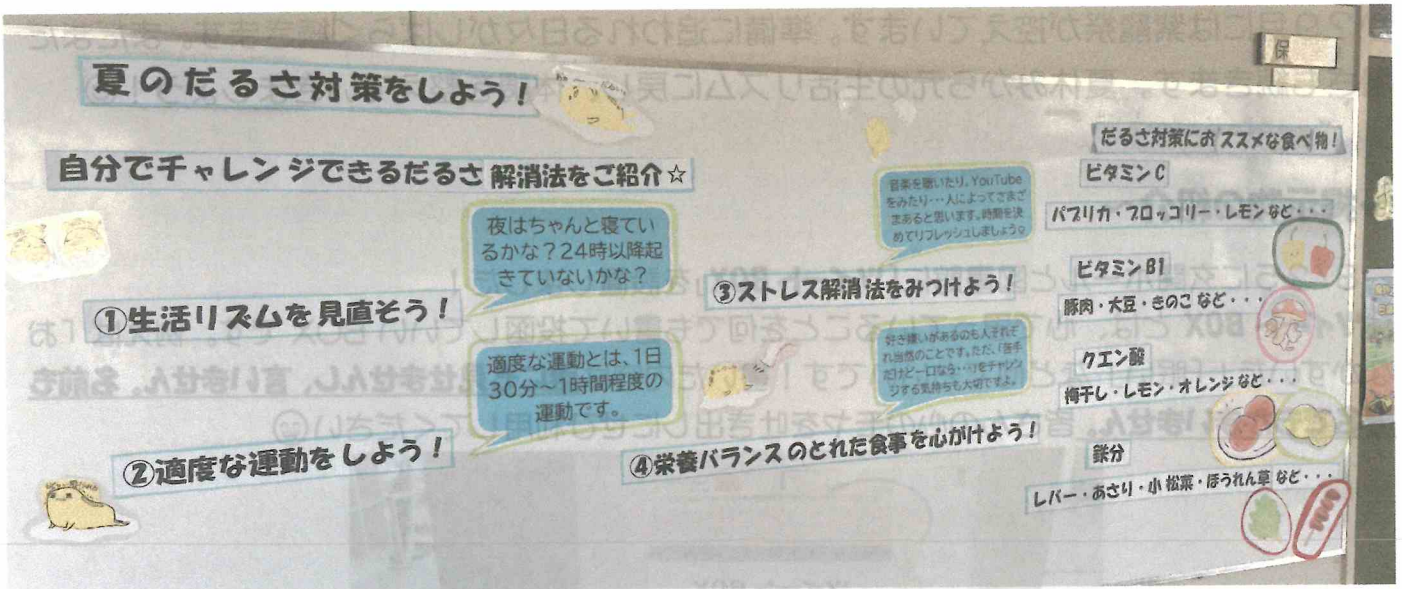 夏のだるさ対策をしよう!
自分でチャレンジできるだるさ解消法をご紹介☆
夜はちゃんと寝てい
るかな?24時以降起
きていないかな?
①生活リズムを見直そう!
適度な運動とは、1日
30分~1時間程度の
運動です。
②適度な運動をしよう!
音楽を聴いたり、YouTube
をみたり・・・人によってさまざ
まあると思います。時間を決
めてリフレッシュしましょう。
③ストレス解消法をみつけよう!
好き嫌いがあるのも人それぞ
れ当然のことです。ただ、「苦手
だけど一口なら・・・」をチャレン
ジする気持ちも大切ですよ。
④栄養バランスのとれた食事を心がけよう!
保
だるさ対策におススメな食べ物!
ビタミンC
パプリカ・ブロッコリー・レモンなど・・・
ビタミンB1
豚肉・大豆・きのこなど・・・
クエン酸
梅干し・レモン・オレンジなど・・・
鉄分
レバー・あさり・小松菜・ほうれん草など・・・